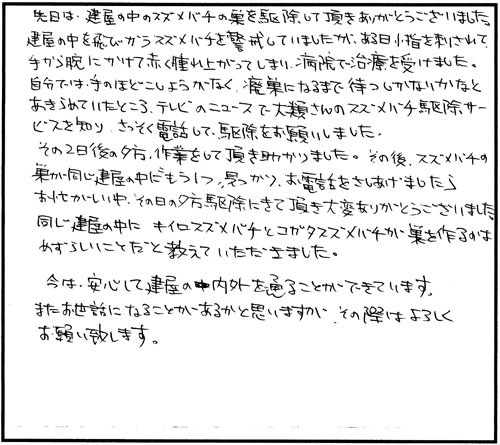 先日は、建屋の中のスズメバチの巣を駆除して頂きありがとうございました。
建屋の中を飛びかうスズメバチを警戒していましたが、ある日小指を刺されて、
手から腕にかけて赤く腫れ上がってしまい、病院で治療を受けました。
自分では、手のほどこしようがなく、廃巣になるまで待つしかないかなと
あきらめていたところ、テレビのニュースで大類さんのスズメバチ駆除サー
ビスを知り、さっそく電話して、駆除をお願いしました。
その2日後の夕方、作業をして頂き助かりました。その後、スズメバチの
巣が同じ建屋の中にもう1つ、見つかり、お電話をさしあげましたら
お忙しい中、その日の夕方駆除にきて頂き大変ありがとうございました
同じ建屋の中に キイロスズメバチとコガタスズメバチが巣を作るのは
めずらしいことだと教えていただきました。
今は、安心して建屋の中内外を通ることができています。
またお世話になることがあるかと思いますが、その際はよろしく
お願い致します。